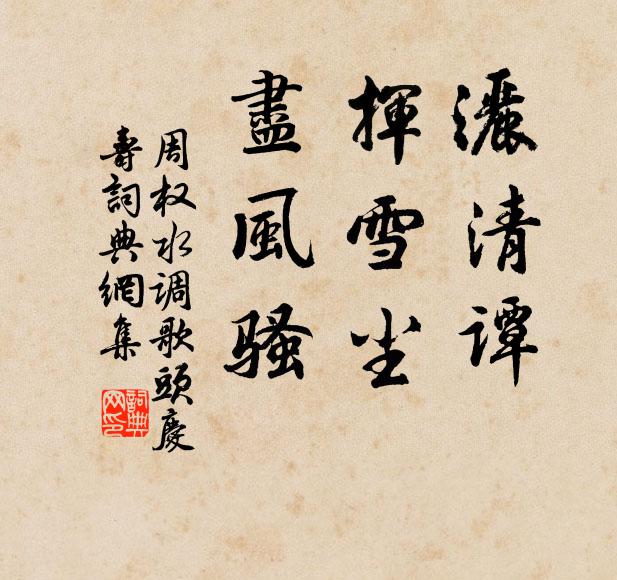 灑清譚
揮雪尘
盡風騷
周权水调歌頭慶
壽詞典網集
詞典
网印